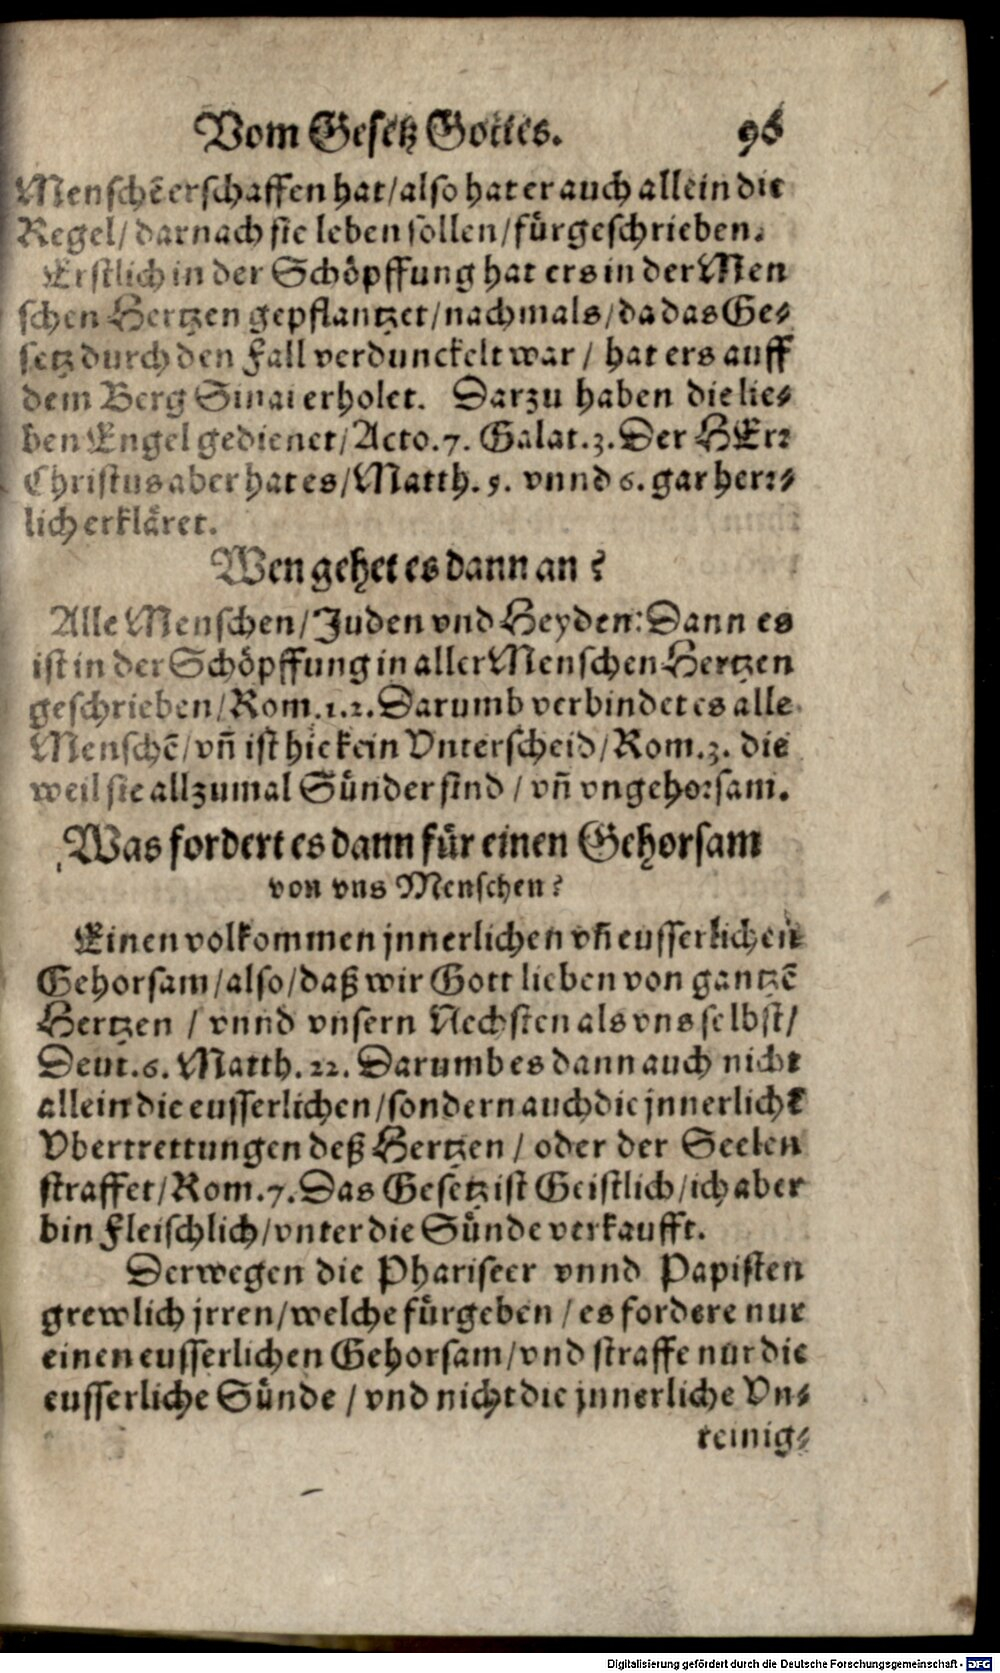 Vom Gesetz Gottes. 96
Menschẽ erschaffen hat/also hat er auch allein die
Regel/darnach sie leben sollen/fürgeschrieben.
Erstlich in der Schöpffung hat ers in der Men
schen Hertzen gepflantzet/nachmals/da das Ge-
setz durch den Fall verdunckelt war / hat ers auff
dem Berg Sinai erholet. Darzu haben die lie-
ben Engel gedienet/Acto.7. Galat.3. Der HErr
Christus aber hat es/Matth. 5. vnnd 6. gar herr-
lich erkläret.
Wen gehet es dann an?
Alle Menschen/Juden vnd Heyden: Dann es
ist in der Schöpffung in aller Menschen Hertzen
geschrieben/Rom.1.2. Darumb verbindet es alle
Menschẽ/vñ ist hie kein Vnterscheid/Rom.3. die
weil sie allzumal Sünder sind / vñ vngehorsam.
Was fordert es dann für einen Gehorsam
von vns Menschen?
Einen volkommen jnnerlichen vñ eusserlichen
Gehorsam/also/daß wir Gott lieben von gantzẽ
Hertzen / vnnd vnsern Nechsten als vns selbst/
Deut.6. Matth. 22. Darumb es dann auch nicht
allein die eusserlichen/sondern auch die jnnerlichẽ
Vbertrettungen deß Hertzen / oder der Seelen
straffet/Rom.7. Das Gesetz ist Geistlich/ich aber
bin Fleischlich/vnter die Sünde verkaufft.
Derwegen die Phariseer vnnd Papisten
grewlich jrren/welche fürgeben / es fordere nur
einen eusserlichen Gehorsam/vnd straffe nur die
eusserliche Sünde / vnd nicht die jnnerliche Vn-
reinig-
Digitalisierung gefördert durch die Deutsche Forschungsgemeinschaft - DFG